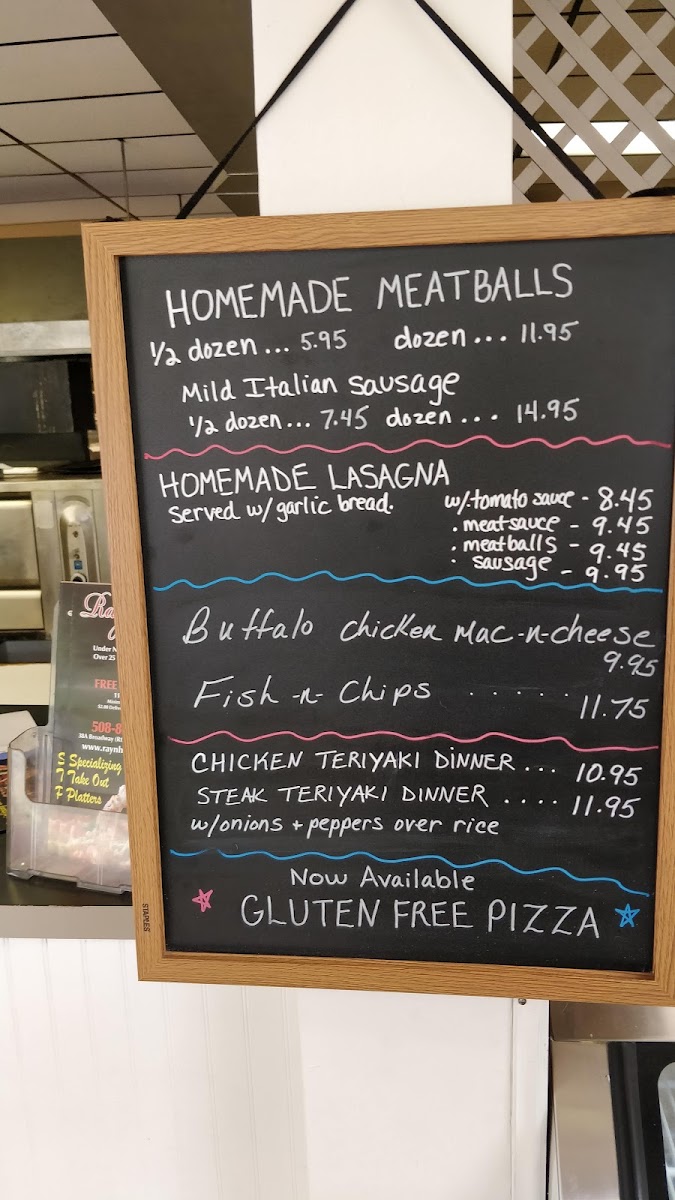 HOMEMADE MEATBALLS
1/2 dozen ... 5.95 dozen ... 11.95
Mild Italian sausage
1/2 dozen ... 7.45 dozen ... 14.95
HOMEMADE LASAGNA
served w/ garlic bread.
w/.tomato sauce - 8.45
. meat sauce - 9.45
. meatballs - 9.45
. sausage - 9.95
Buffalo chicken mac-n-cheese
9.95
Fish -n- Chips ...... 11.75
CHICKEN TERIYAKI DINNER ... 10.95
STEAK TERIYAKI DINNER .... 11.95
w/onions + peppers over rice
Now Available
GLUTEN FREE PIZZA
STAPLES
Under N
Over 25
FREE
508-8
38A Broadway (R
www.raynh
Specializing
Take Out
Platters